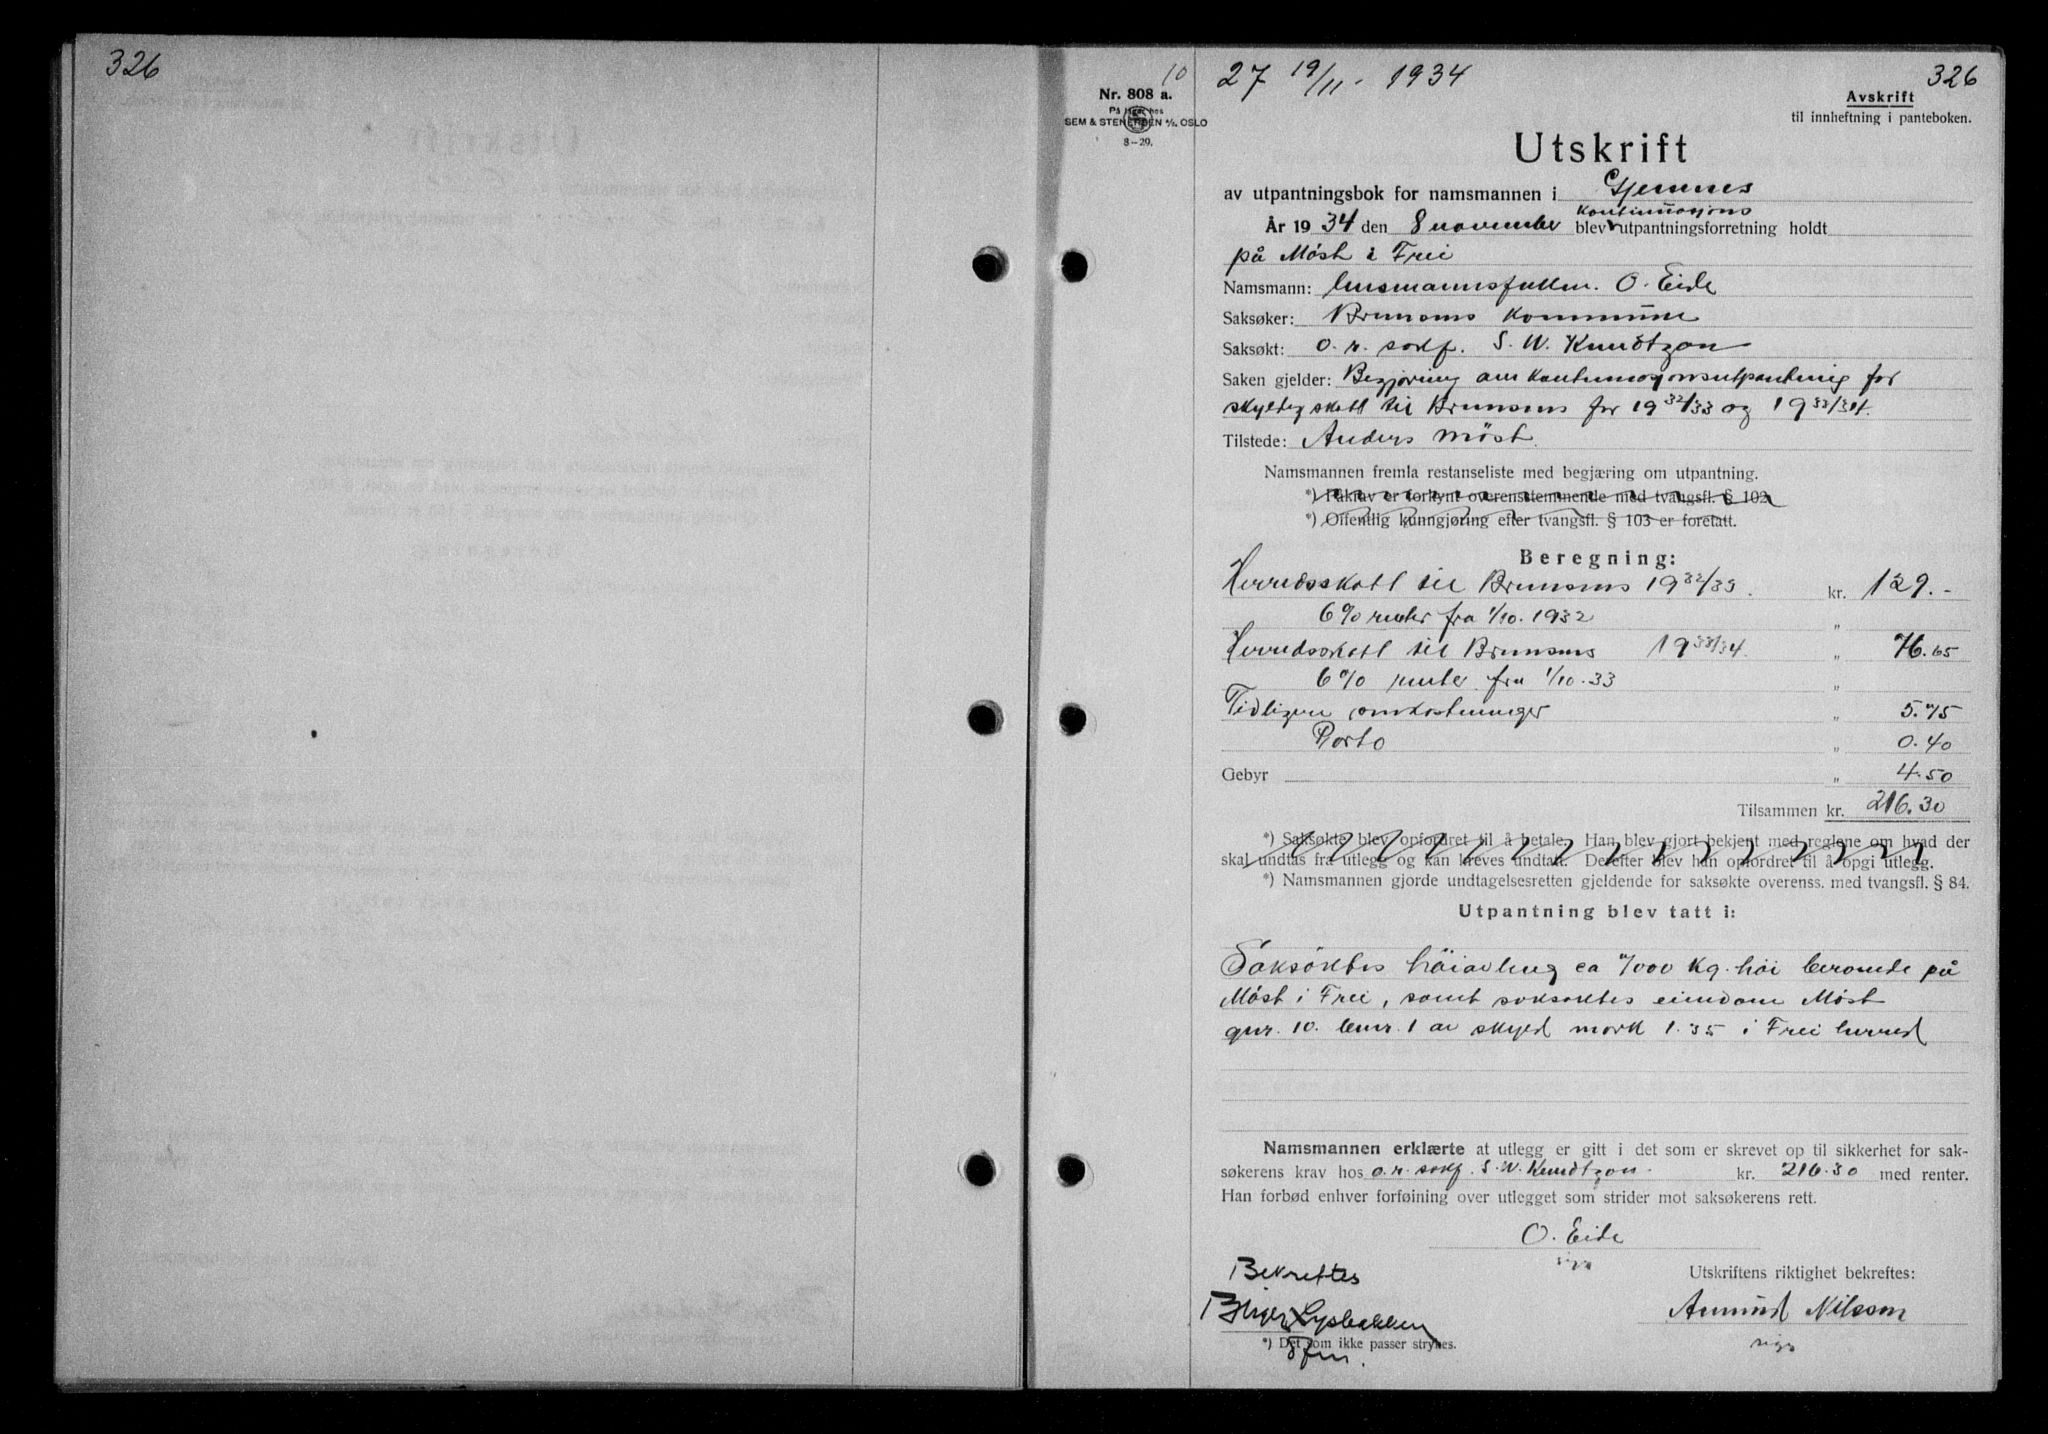 326
10
27 19/11 - 1934
326
Nr. 808 a.
På lager hos
SEM & STENERSEN A/S, OSLO
8-29.
Avskrift
til innheftning i panteboken.
Utskrift
av utpantningsbok for namsmannen i Gjemnes
kontinuasjons
År 1934 den 8 november blev utpantningsforretning holdt
på Møst i Frei
Namsmann: lensmannsfullm. O. Eide
Saksøker: Bremsnes kommune
Saksøkt: o.r. sakf. S. W. Knudtzon
Saken gjelder: Begjøring om kontinuasjonsutpantning for
skyldig skatt til Bremsnes for 1932/33 og 1933/34.
Tilstede: Anders Møst.
Namsmannen fremla restanseliste med begjæring om utpantning.
*) Påkrav er forkynt overensstemmende med tvangsfl. § 102
*) Offentlig kunngjøring efter tvangsfl. § 103 er foretatt.
Beregning:
Herredsskatt til Bremsnes 1932/33. kr. 129.-
6% renter fra 1/10. 1932 "
Herredsskatt til Bremsnes 1933/34. " 76.65
6% renter fra 1/10. 33 "
Tidligere omkostninger " 5.75
Porto " 0.40
Gebyr " 4.50
Tilsammen kr. 216.30
*) Saksøkte blev opfordret til å betale. Han blev gjort bekjent med reglene om hvad der
skal undtas fra utlegg og kan kreves undtatt. Derefter blev han opfordret til å opgi utlegg.
*) Namsmannen gjorde undtagelsesretten gjeldende for saksøkte overenss. med tvangsfl. § 84.
Utpantning blev tatt i:
Saksøktes höiavling ca 7000 kg. höi beroende på
Møst i Frei, samt saksøktes eiendom Møst
gnr. 10. bnr. 1 av skyld mark 1.35 i Frei herred
Namsmannen erklærte at utlegg er gitt i det som er skrevet op til sikkerhet for sak-
søkerens krav hos o.r. sakf. S. W. Knudtzon. kr. 216.30 med renter.
Han forbød enhver forføining over utlegget som strider mot saksøkerens rett.
O. Eide
sign
Bekreftes
Utskriftens riktighet bekreftes:
Birger Lysbakken
Amund Nilsson
*) Det som ikke passer strykes.
sign